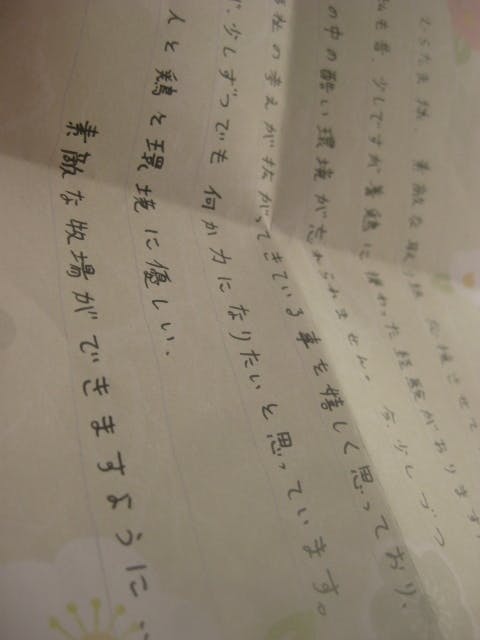 素敵な取り組 応援させて
も昔、少しですが養鶏に携わった経験があります
の中の酷い環境が忘れられません。今、少しづつ
の考えが広がってきている事を嬉しく思っており、
少しずつでも何か力になりたいと思っています。
人と鶏と環境に優しい、
素敵な牧場ができますように